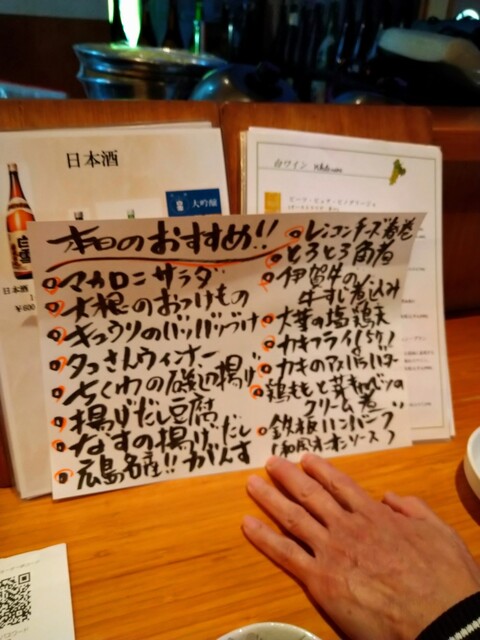 日本酒
大吟醸
日本酒
¥600
白ワイン
本日のおすすめ!!
マカロニサラダ
大根のおつけもの
キュウリのバリバリづけ
タコさんウィンナー
ちくわの磯辺揚げ
揚げだし豆腐
なすの揚げだし
広島名産!! がんす
レンコンチーズ春巻
とろとろ角煮
伊賀牛の
牛すじ煮込み
大葉の塩鶏天
カキフライ
カキの
鶏ももと芽キャベツの
クリーム煮
鉄板ハンバーグ
(和風オニオンソース)